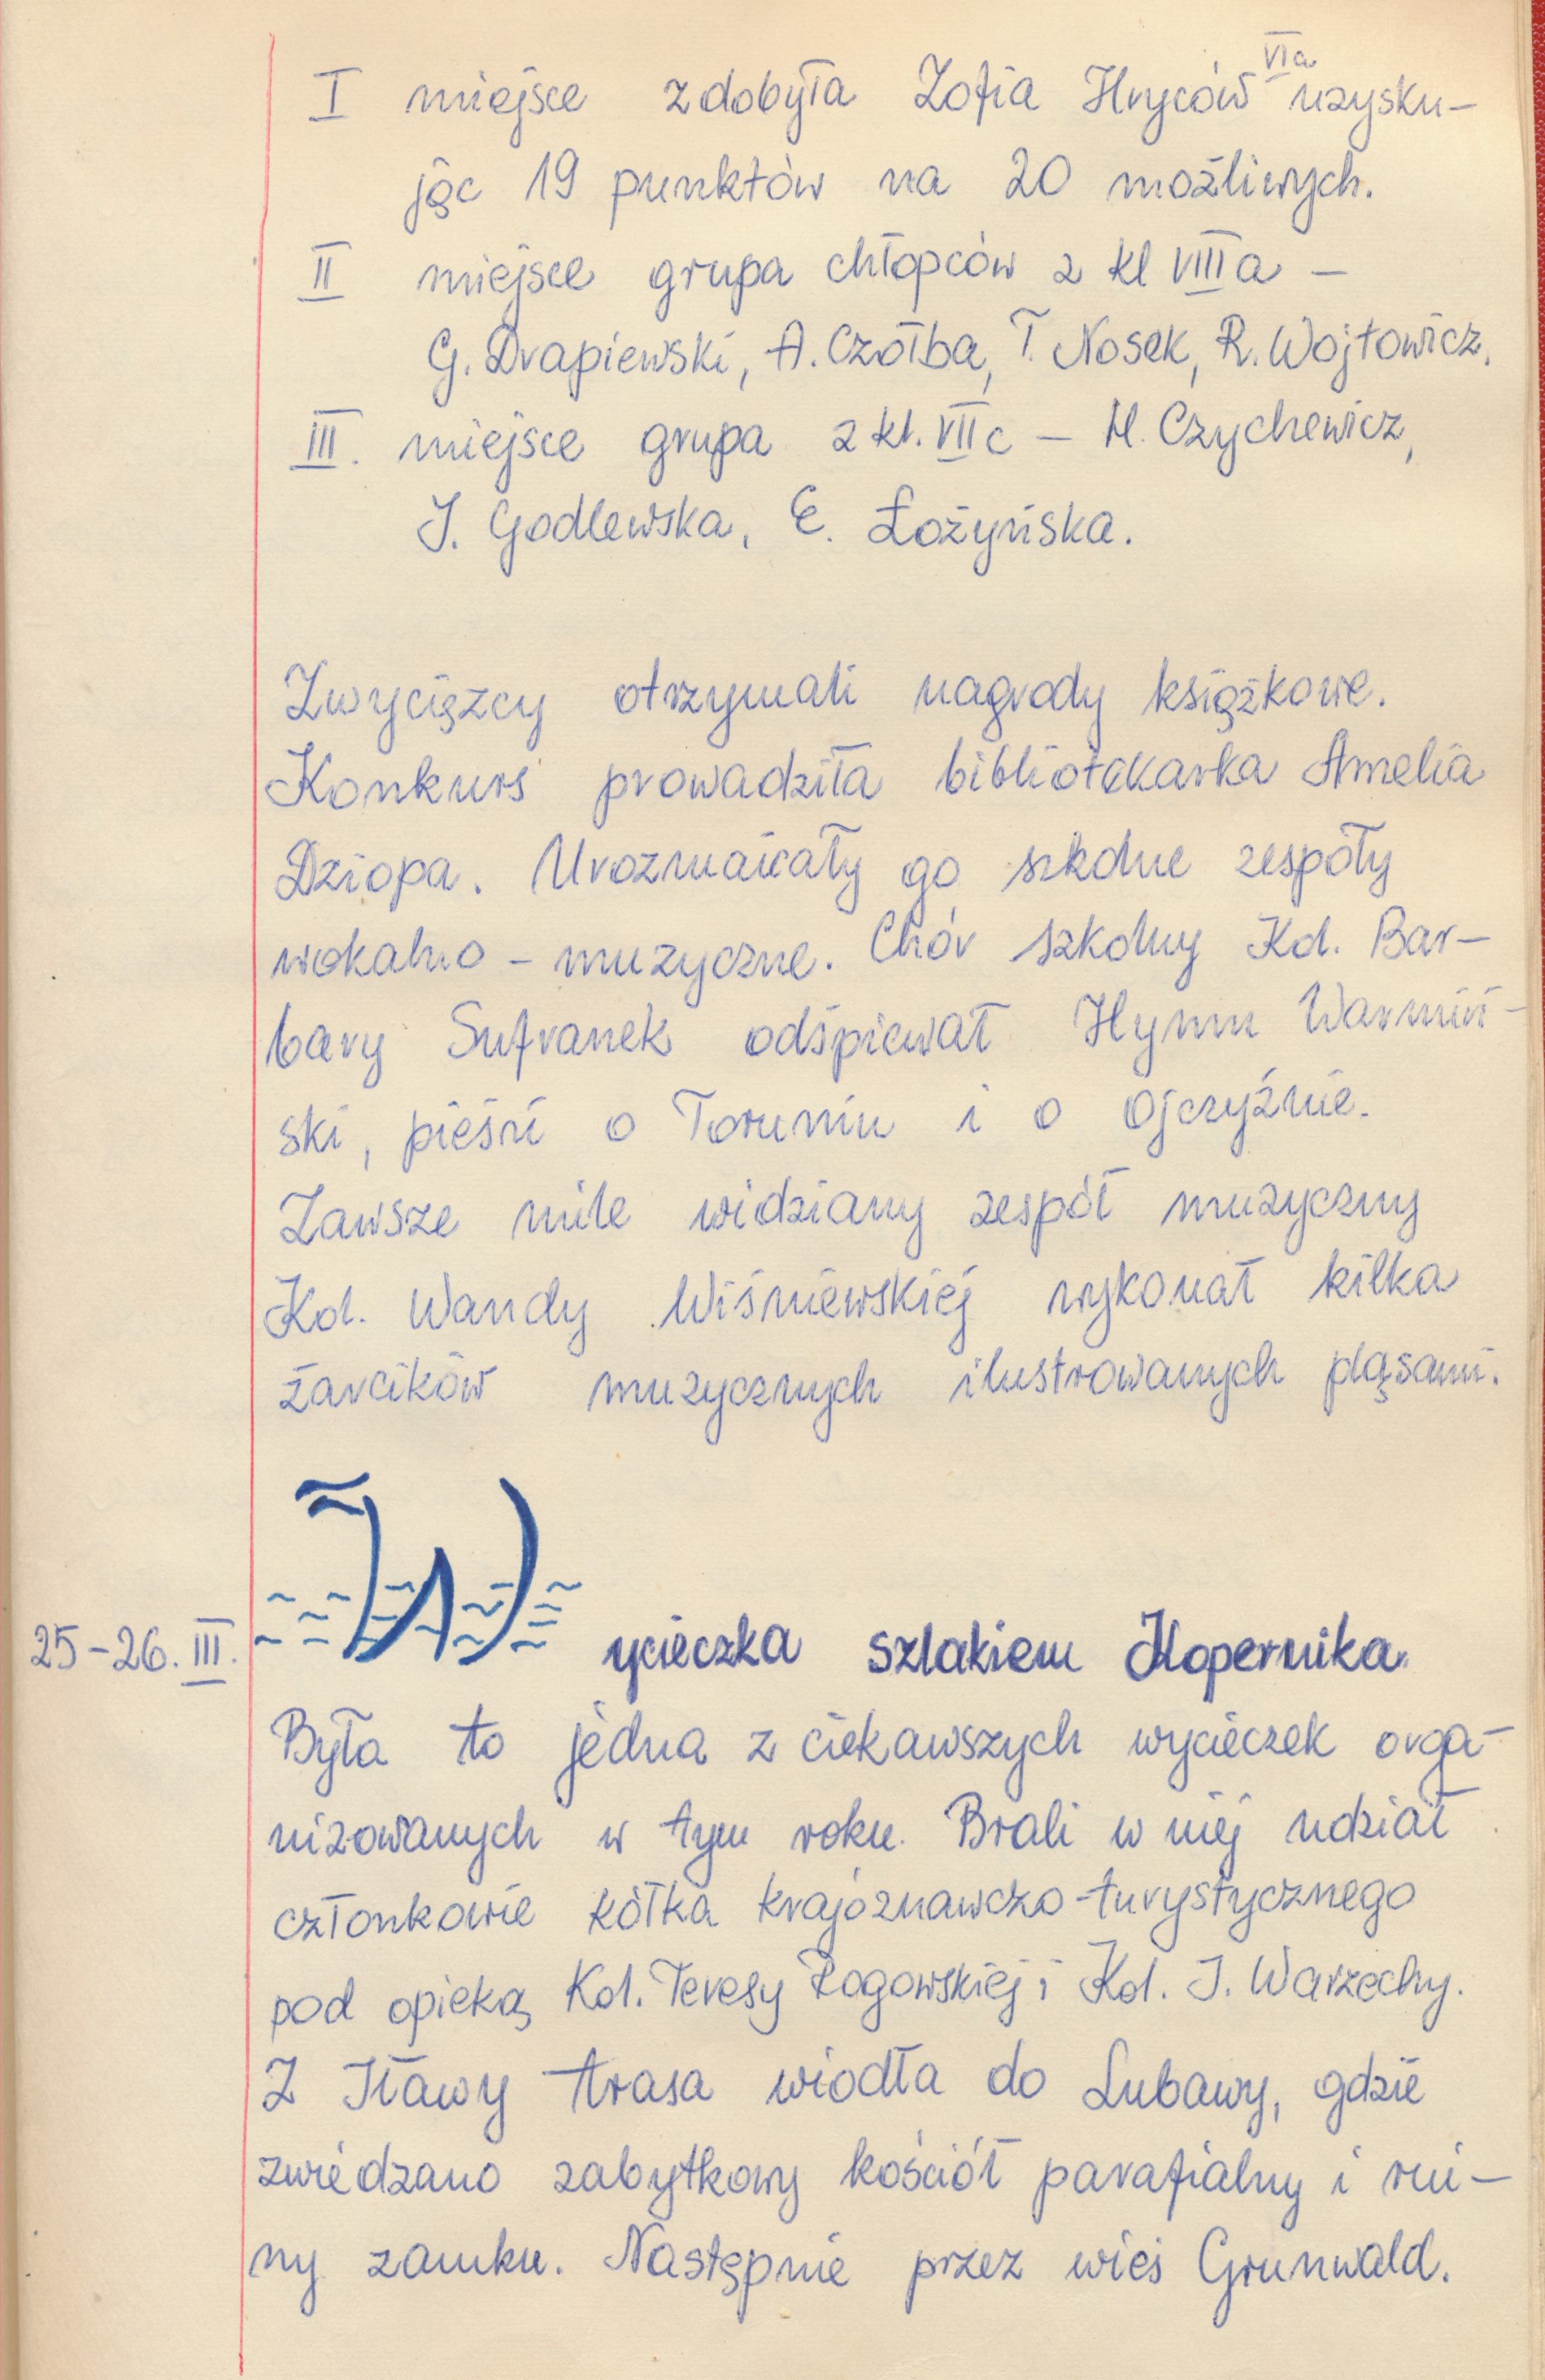 VIa
I miejsce zdobyła Zofia Hryców uzysku-
jąc 19 punktów na 20 możliwych.
II miejsce grupa chłopców z kl VIII a -
G. Drapiewski, A. Czółba, T. Nosek, R. Wojtowicz.
III. miejsce grupa z kl. VII c - M. Czychewicz,
J. Godlewska, E. Łożyńska.
Zwyciązcy otrzymali nagrody książkowe.
Konkurs prowadziła bibliotekarka Amelia
Dziopa. Urozmaicały go szkolne zespoły
wokalno - muzyczne. Chór szkolny Kol. Bar-
bary Sufranek odśpiewał Hymn Warmiń-
ski, pieśni o Toruniu i o Ojczyźnie.
Zawsze mile widziany zespół muzyczny
Kol. Wandy Wiśniewskiej wykonał kilka
żarcików muzycznych ilustrowanych pląsami.
25-26. III. Wycieczka szlakiem Kopernika.
Była to jedna z ciekawszych wycieczek orga-
nizowanych w tym roku. Brali w niej udział
członkowie kółka krajoznawczo-turystycznego
pod opieką Kol. Teresy Rogowskiej i Kol. J. Warzechy.
Z Iławy trasa wiodła do Lubawy, gdzie
zwiedzano zabytkowy kościół parafialny i rui-
ny zamku. Następnie przez wieś Grunwald.